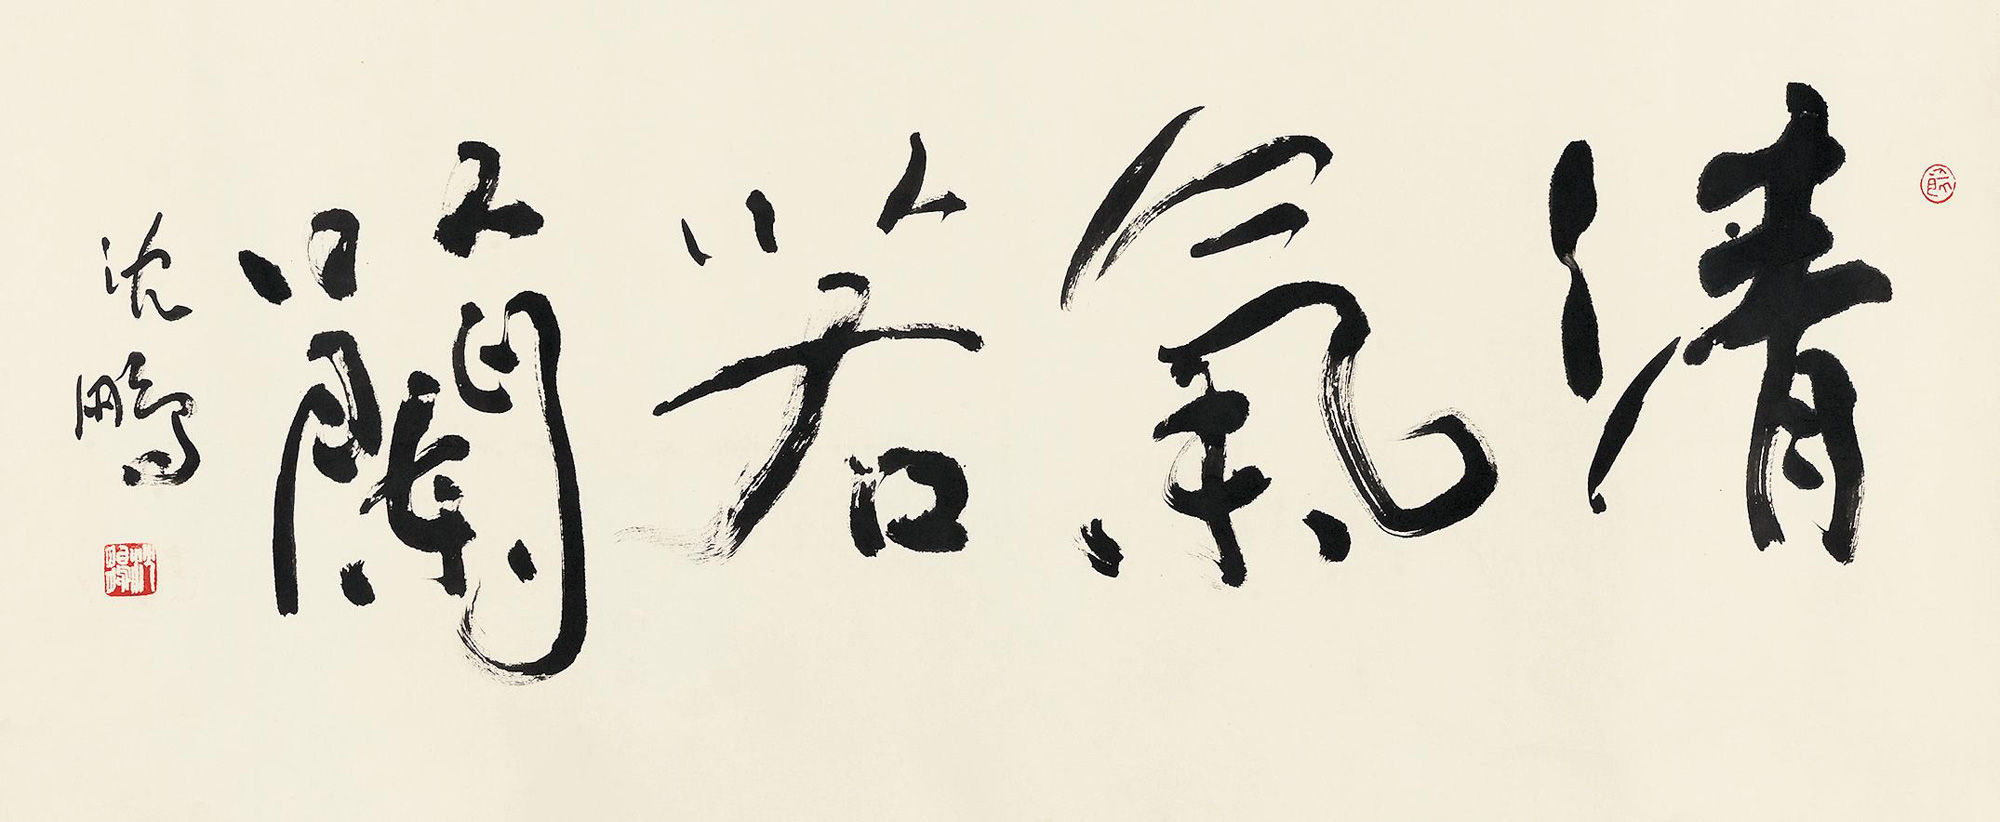 清氣若蘭
沈鵬